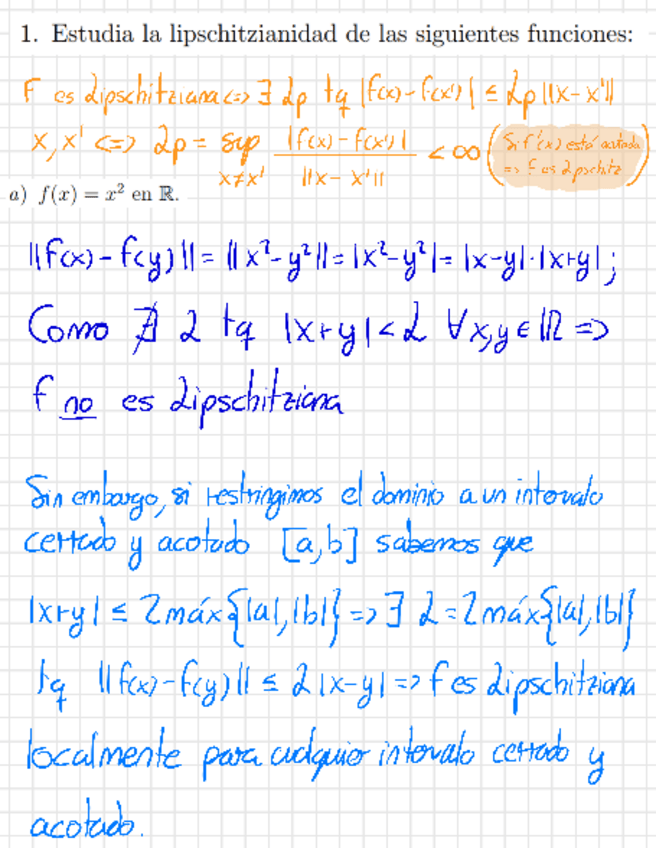 1. Estudia la lipschitzianidad de las siguientes funciones:
F es Lipschitziana <=> ∃ Lp tq |f(x) - f(x')| ≤ Lp ||x - x'||
x, x' <=> Lp = sup |f(x) - f(x')| / ||x - x'|| < ∞ (Si f'(x) está acotada
x≠x' => F es Lipschitz)
a) f(x) = x² en ℝ.
||f(x) - f(y)|| = ||x² - y²|| = |x² - y²| = |x - y|·|x + y|;
Como ∄ L tq |x + y| < L ∀x, y ∈ ℝ =>
f no es Lipschitziana
Sin embargo, si restringimos el dominio a un intervalo
cerrado y acotado [a, b] sabemos que
|x + y| ≤ 2 máx{|a|, |b|} => ∃ L = 2 máx{|a|, |b|}
tq ||f(x) - f(y)|| ≤ L |x - y| => f es Lipschitziana
localmente para cualquier intervalo cerrado y
acotado.